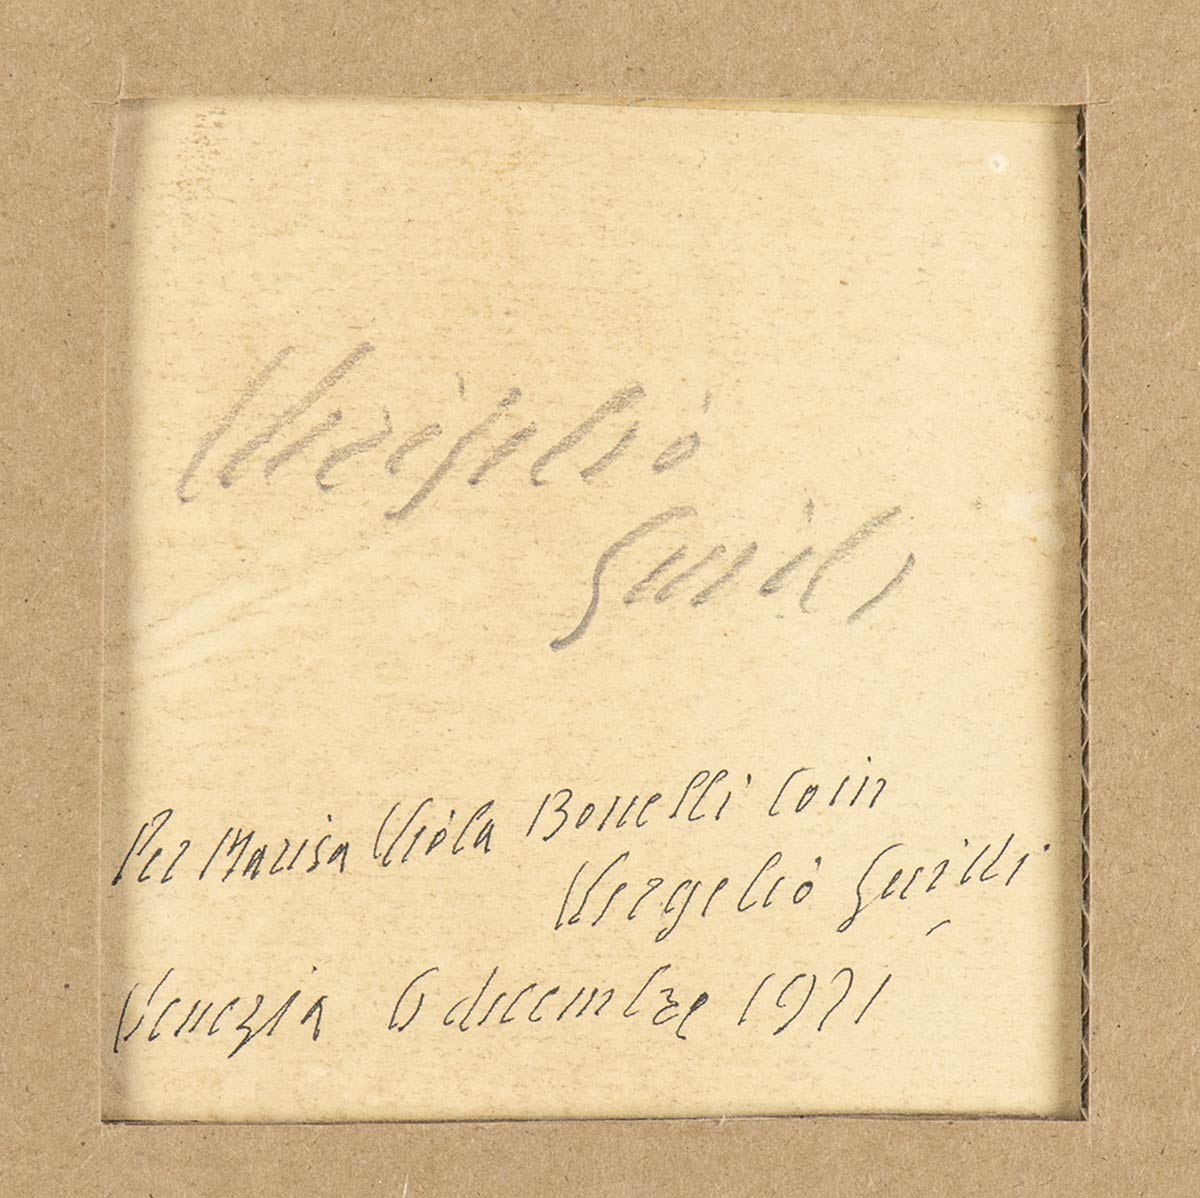 Virgilio
Guidi
Per Marisa Viola Bonelli Coin
Virgilio Guidi
Venezia 6 dicembre 1971